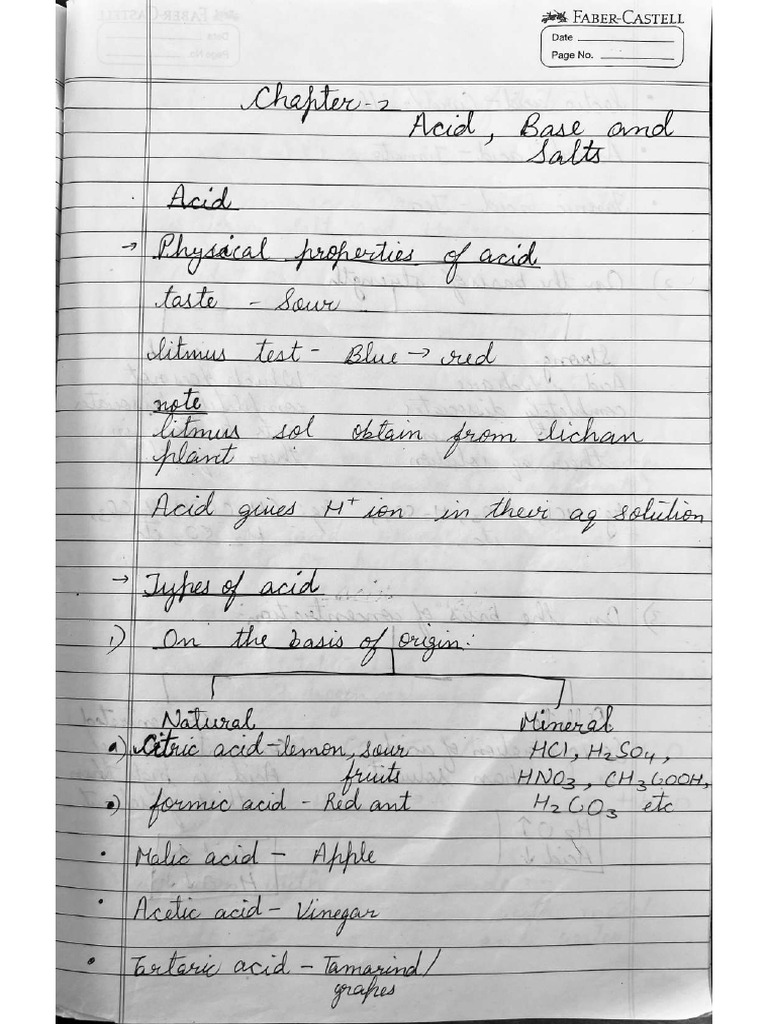 FABER-CASTELL
Date
Page No.
Chapter-2
Acid, Base and
Salts
Acid
→ Physical properties of acid
taste - Sour
litmus test - Blue → red
note
litmus sol obtain from lichan
plant
Acid gives H⁺ ion in their aq solution
→ Types of acid
1) On the basis of origin:
Natural Mineral
a) Citric acid - lemon, sour HCl, H₂SO₄,
fruits HNO₃, CH₃COOH,
•) formic acid - Red ant H₂CO₃ etc
• Malic acid - Apple
• Acetic acid - Vinegar
• Tartaric acid - Tamarind/
grapes